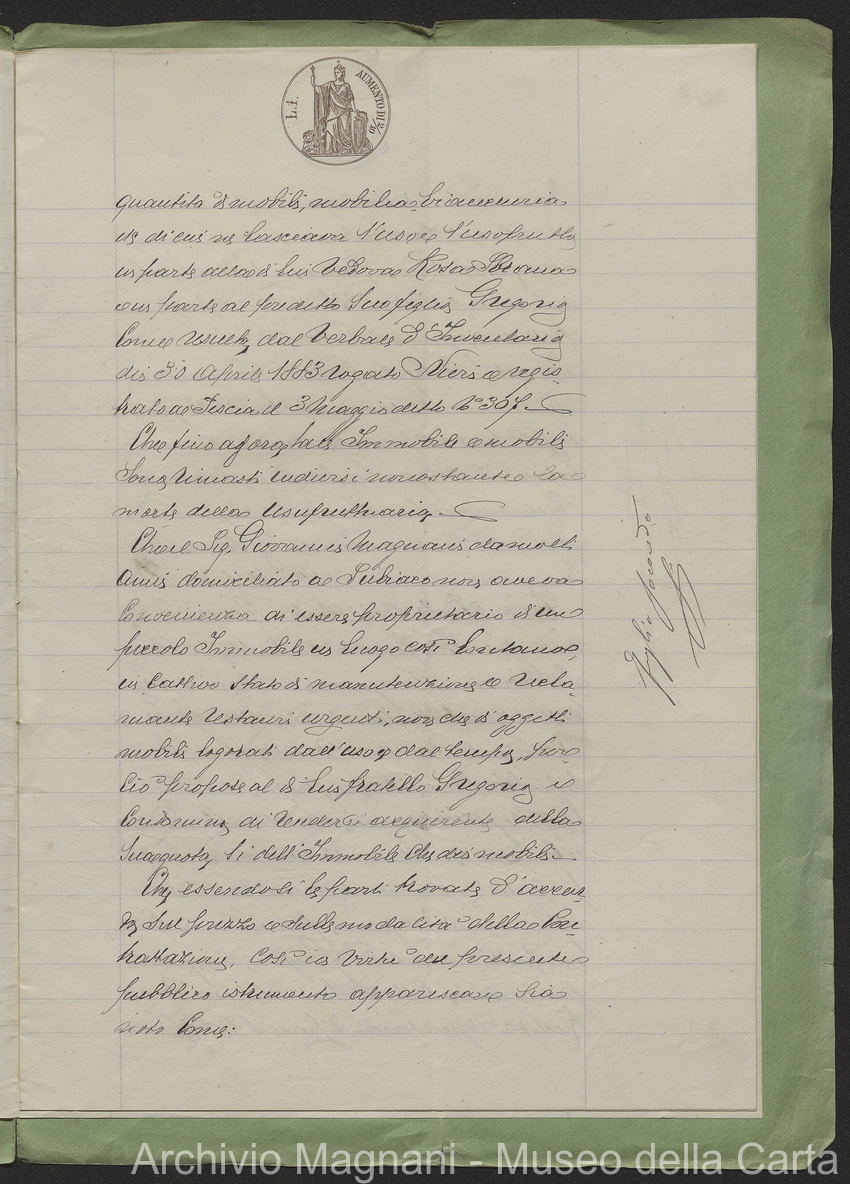 L. 1. AUMENTO DI 2/10
quantità di mobili, mobilia, biancheria
di cui ne lasciava l'uso e l'usofrutto
in parte alla di lui Vedova Rosa
e in parte al predetto Suo figlio Gregorio
Come dal Verbale d'Inventario
del 30 Aprile 1883 rogato Nieri e regis-
trato a Pescia il 3 Maggio detto N° 307.
Che fino ad ora tali Immobile e mobili
Sono rimasti indivisi nonostante la
morte della Usufruttuaria.
Che il Sig. Giovanni Magnani da molti
Anni domiciliato a Subiaco non aveva
Convenienza di essere proprietario di un
piccolo Immobile in luogo così lontano,
in Cattivo Stato di manutenzione e recla-
mante restauri urgenti, non che di oggetti
mobili logorati dall'uso e dal tempo, per
Ciò propose al di lui fratello Gregorio e
Condomino di rendersi acquirente della
Sua quota, Sì dell'Immobile che dei mobili.
Che essendosi le parti trovate d'accor-
do Sul prezzo e Sulle modalità della Con-
trattazione, Così in Virtù del presente
pubblico istrumento apparisca e Sia
noto Come:
foglio secondo
Archivio Magnani - Museo della Carta